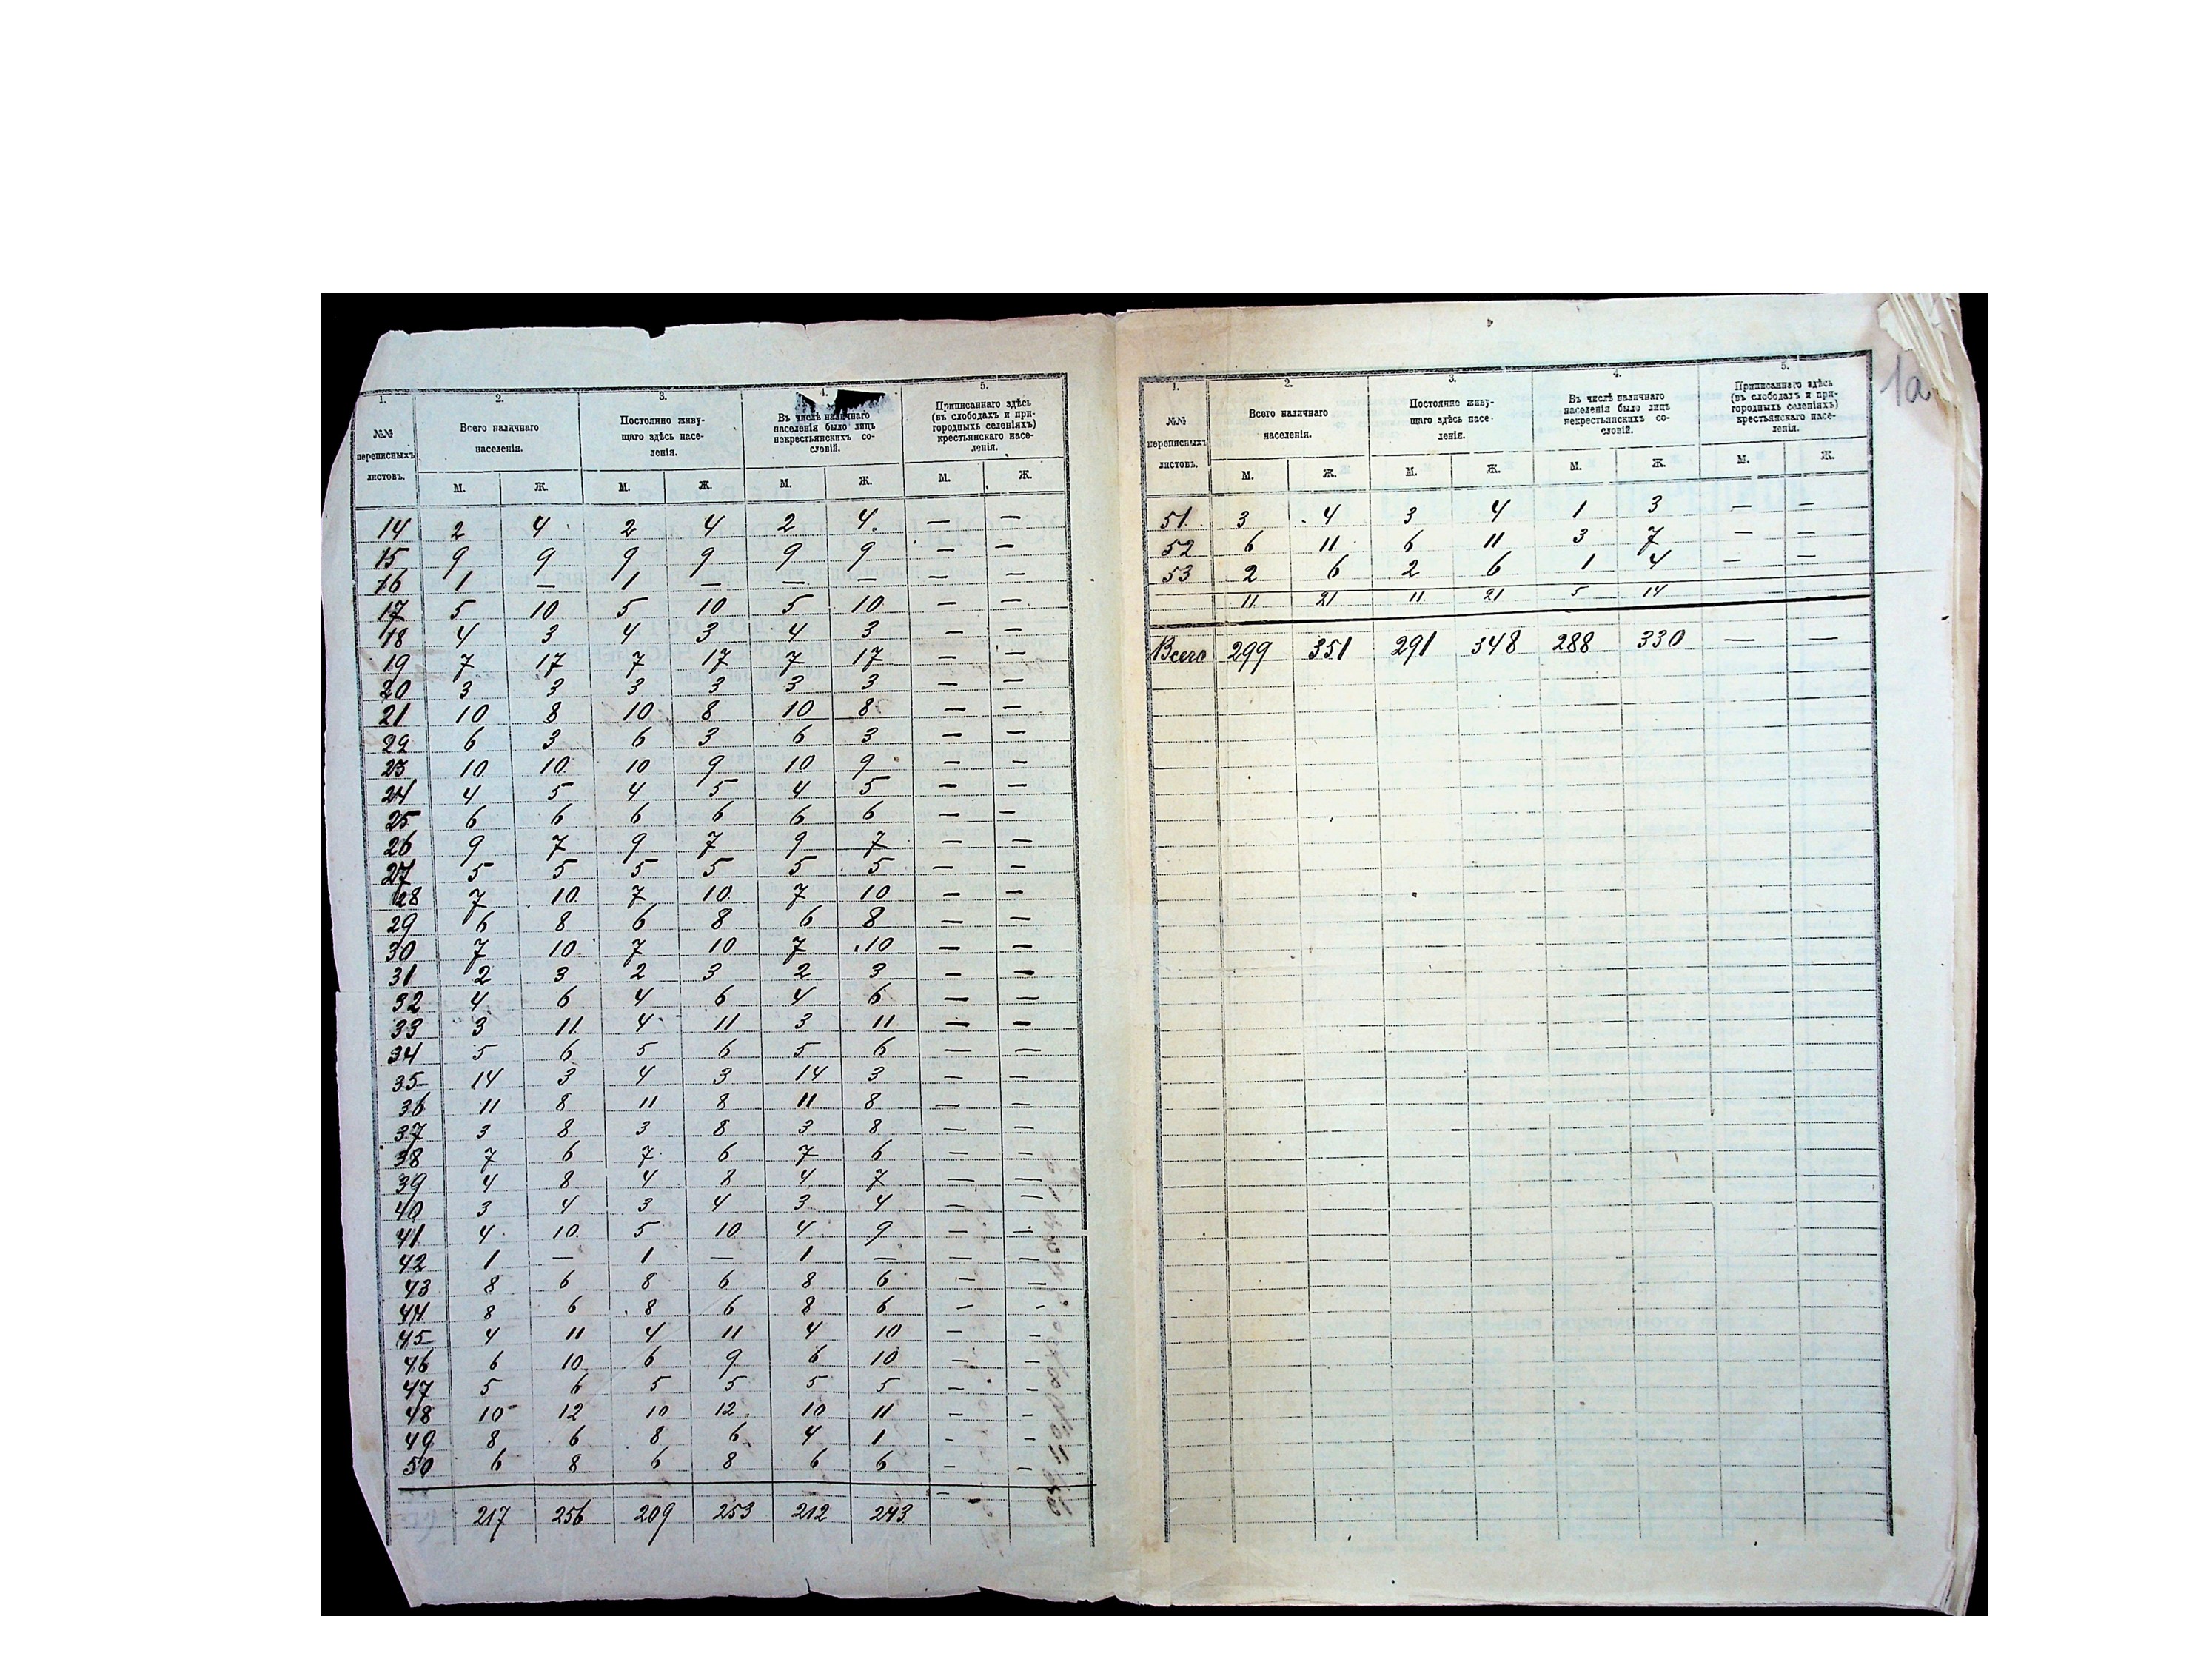 1. 2. 3. 4. 5.
№№ переписныхъ листовъ. Всего наличнаго населенія. Постоянно живущаго здѣсь населенія. Въ числѣ наличнаго населенія было лицъ некрестьянскихъ сословій. Приписаннаго здѣсь (въ слободахъ и пригородныхъ селеніяхъ) крестьянскаго населенія.
М. Ж. М. Ж. М. Ж. М. Ж.
14 2 4 2 4 2 4 — —
15 9 9 9 9 9 9 — —
16 1 — 1 — — — — —
17 5 10 5 10 5 10 — —
18 4 3 4 3 4 3 — —
19 7 17 7 17 7 17 — —
20 3 3 3 3 3 3 — —
21 10 8 10 8 10 8 — —
22 6 3 6 3 6 3 — —
23 10 10 10 9 10 9 — —
24 4 5 4 5 4 5 — —
25 6 6 6 6 6 6 — —
26 9 7 9 7 9 7 — —
27 5 5 5 5 5 5 — —
28 7 10 7 10 7 10 — —
29 6 8 6 8 6 8 — —
30 7 10 7 10 7 10 — —
31 2 3 2 3 2 3 — —
32 4 6 4 6 4 6 — —
33 3 11 4 11 3 11 — —
34 5 6 5 6 5 6 — —
35 14 3 4 3 14 3 — —
36 11 8 11 8 11 8 — —
37 3 8 3 8 3 8 — —
38 7 6 7 6 7 6 — —
39 4 8 4 8 4 7 — —
40 3 4 3 4 3 4 — —
41 4 10 5 10 4 9 — —
42 1 — 1 — 1 — — —
43 8 6 8 6 8 6 — —
44 8 6 8 6 8 6 — —
45 4 11 4 11 4 10 — —
46 6 10 6 9 6 10 — —
47 5 6 5 5 5 5 — —
48 10 12 10 12 10 11 — —
49 8 6 8 6 4 1 — —
50 6 8 6 8 6 6 — —
217 256 209 253 212 243 —
1а
1. 2. 3. 4. 5.
№№ переписныхъ листовъ. Всего наличнаго населенія. Постоянно живущаго здѣсь населенія. Въ числѣ наличнаго населенія было лицъ некрестьянскихъ сословій. Приписаннаго здѣсь (въ слободахъ и пригородныхъ селеніяхъ) крестьянскаго населенія.
М. Ж. М. Ж. М. Ж. М. Ж.
51 3 4 3 4 1 3 — —
52 6 11 6 11 3 7 — —
53 2 6 2 6 1 4 — —
11 21 11 21 5 14
Всего 299 351 291 348 288 330 — —